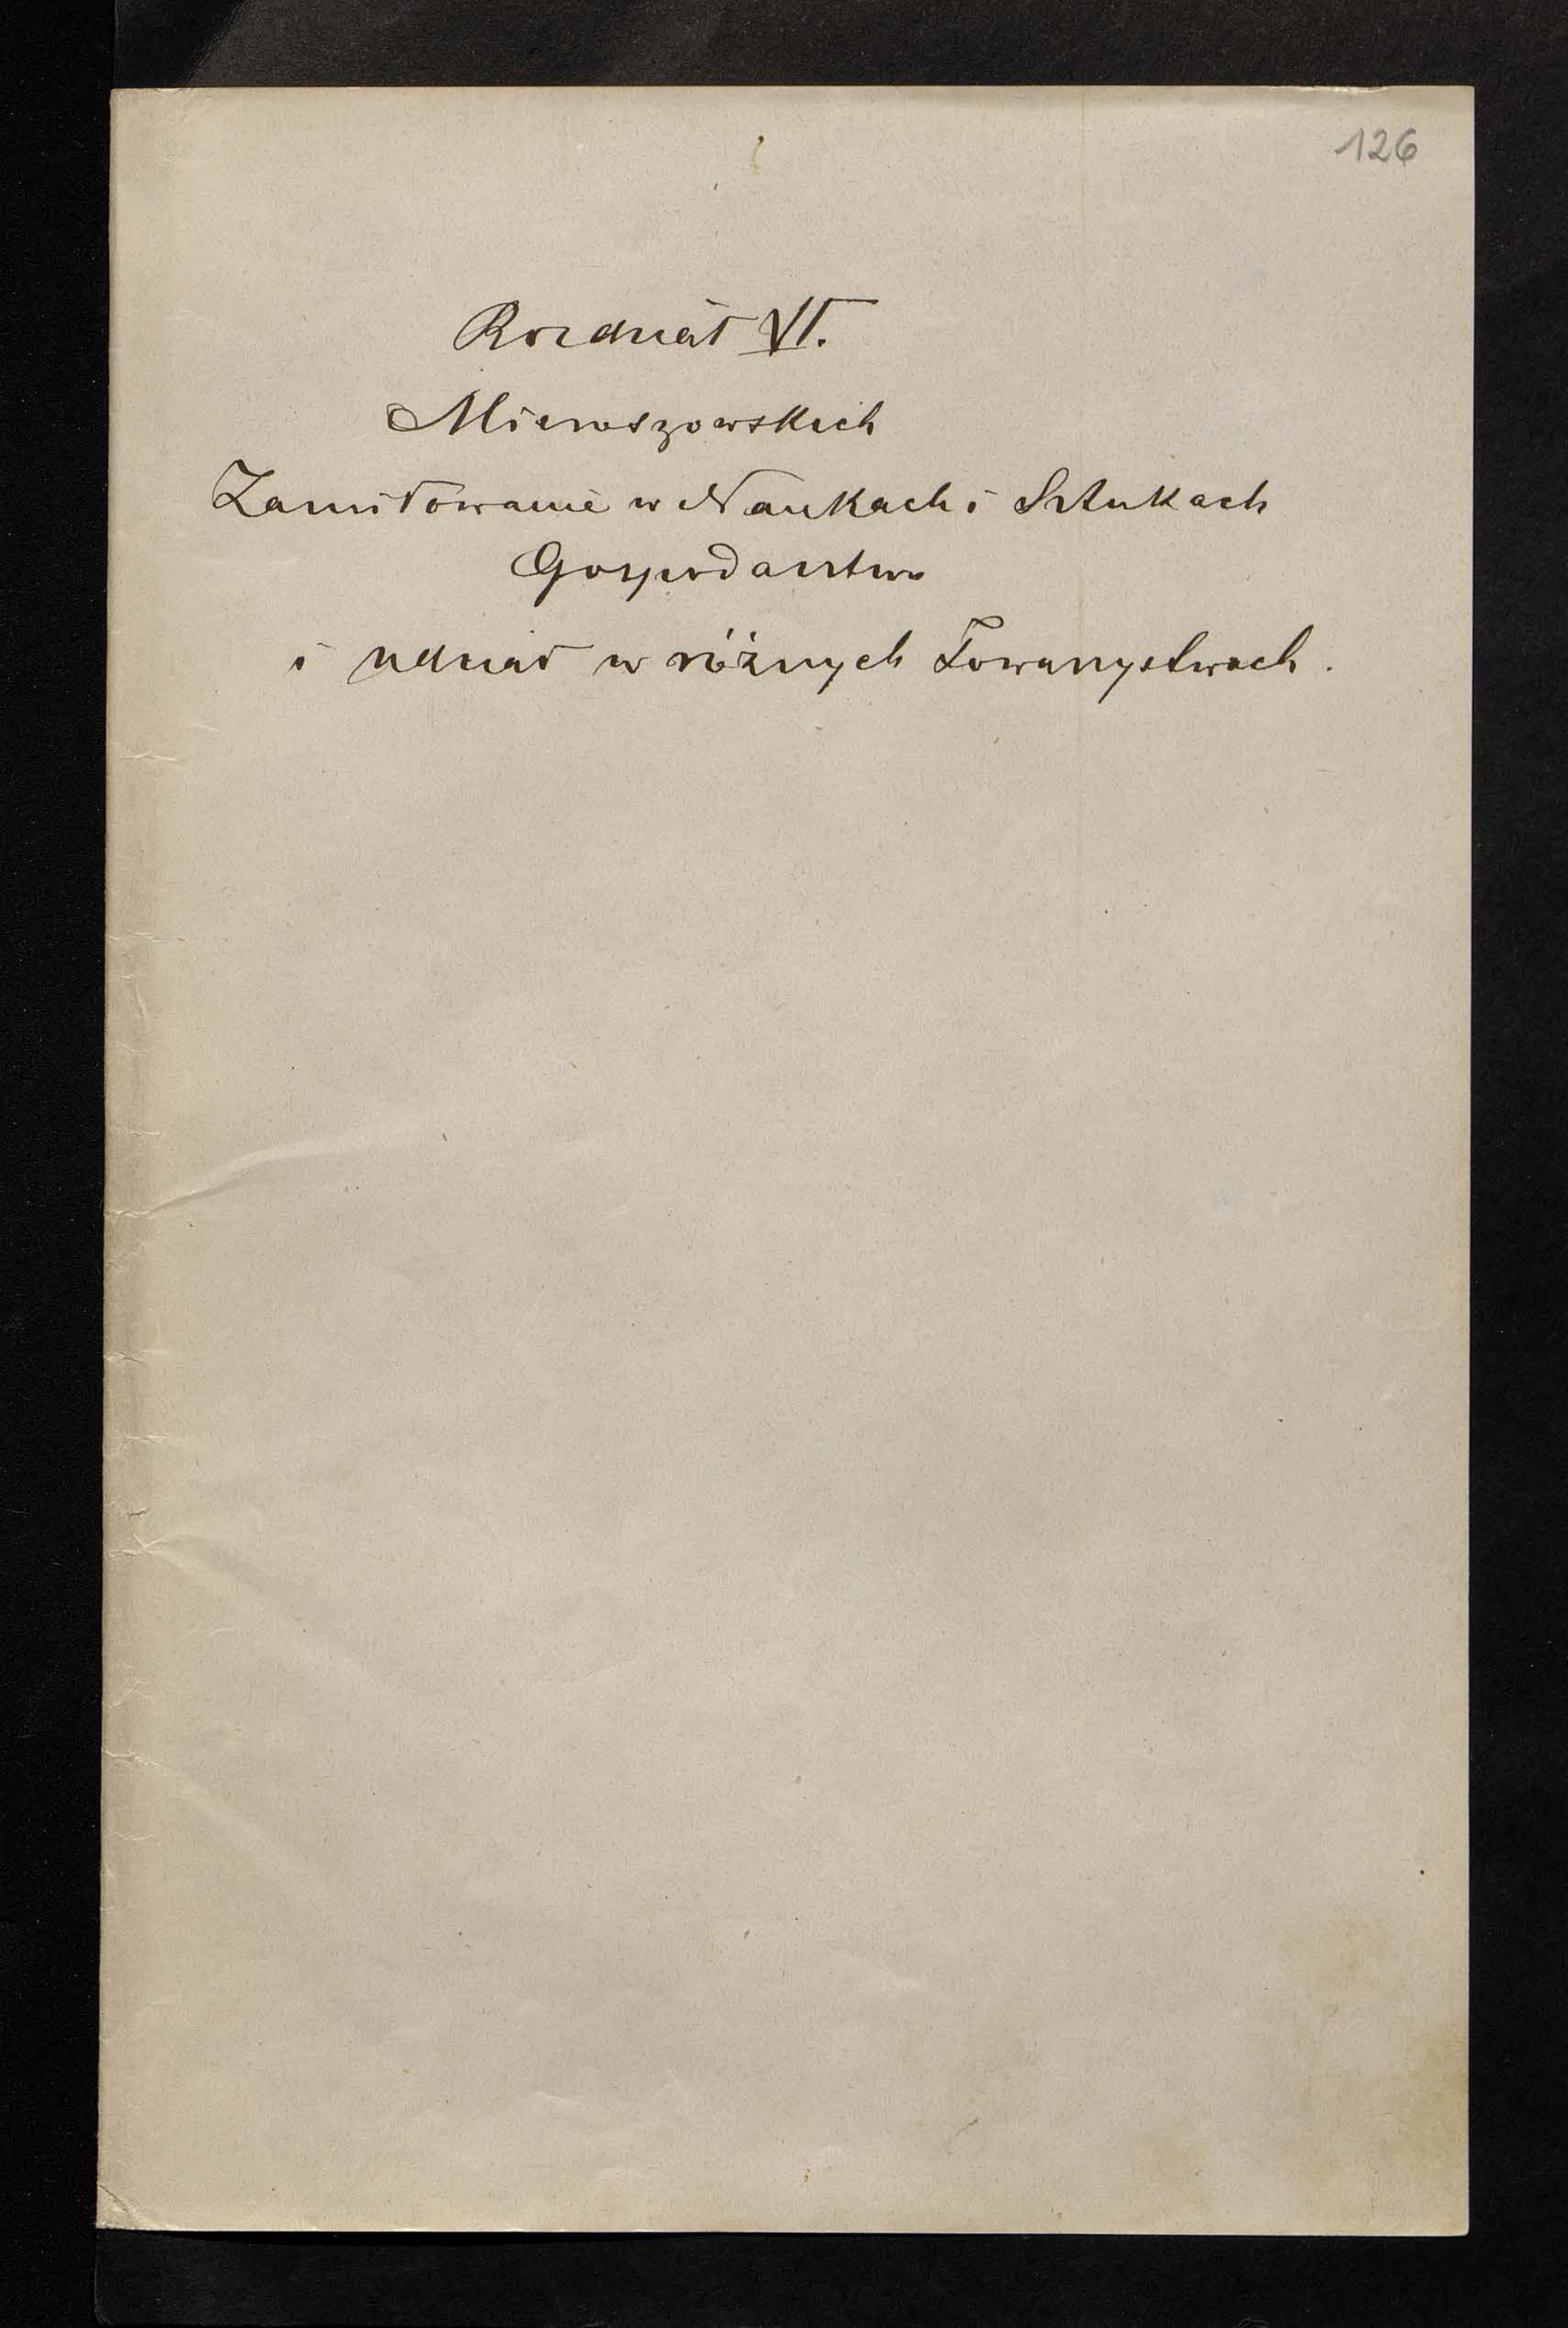 126
Rozdział VI.
Mieroszowskich
Zamiłowanie w Naukach i Sztukach
Gospodarstwo
i udział w różnych Towarzystwach.